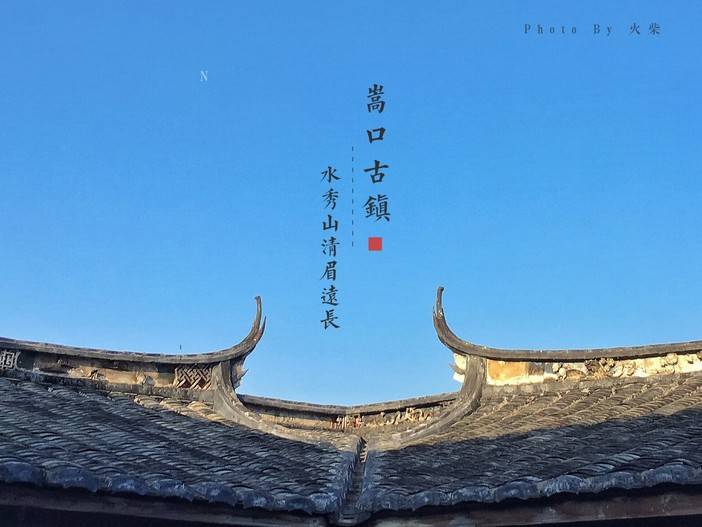 Photo By 火柴
N
嵩口古鎮
水秀山清眉遠長